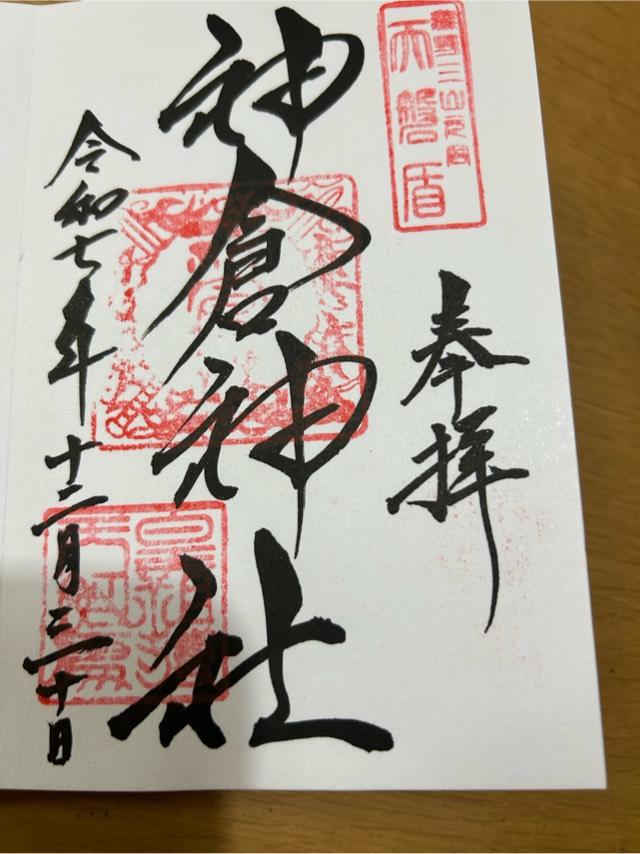 熊野三山元宮
天磐盾
奉拝
神倉神社
令和七年十二月三十日